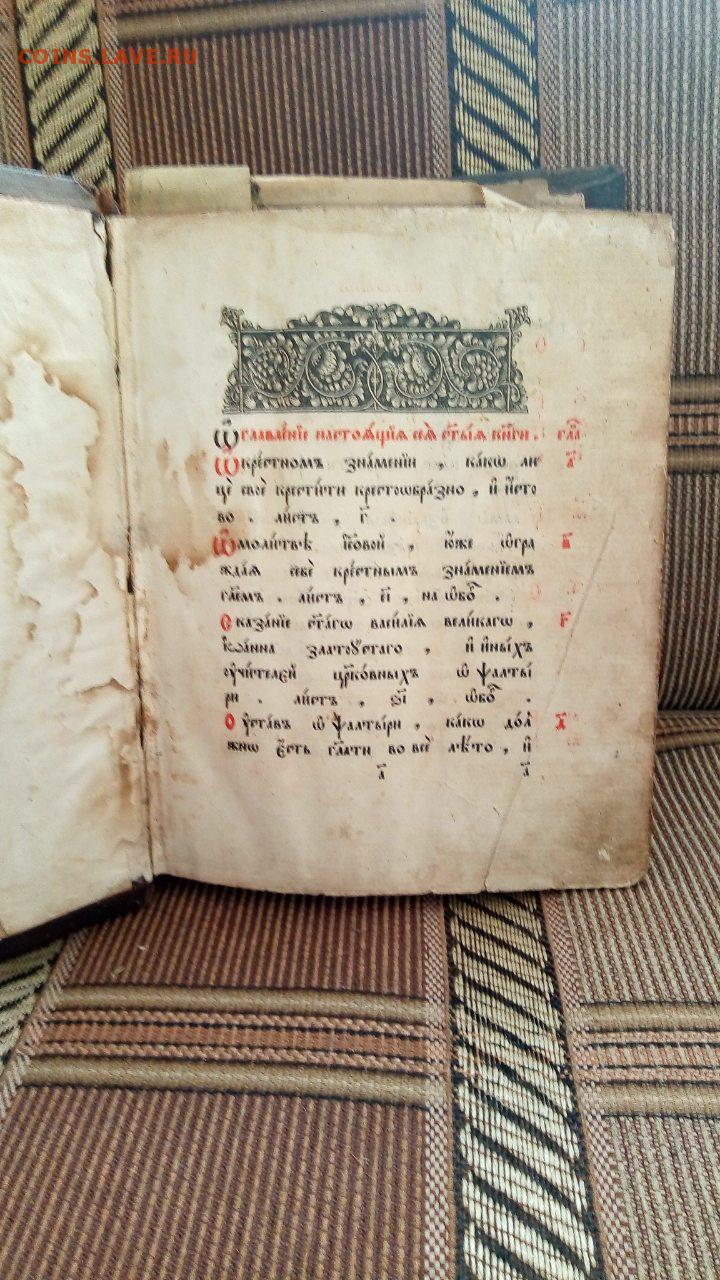 COINS.LAVE.RU
Ѡ҆главле́нїе настоѧ́щїѧ сеѧ̀ ст҃ы́ѧ кни́ги . гла̑
Ѡ҆ кре́стномъ зна́менїи , ка́кѡ ли а҃
цѐ своѐ крести́ти крестоѡбра́зно , и҆ и҆́сто
во . ли́стъ , г҃ .
Ѡ҆ моли́твѣ і҆с҃овой , ю҆́же ѡ҆гра в҃
жда́ѧ себѐ кре́стнымъ зна́менїемъ
гл҃емъ . ли́стъ , є҃і , на ѡ҆бо́ .
Сказа́нїе ст҃а́гѡ васи́лїѧ вели́кагѡ , г҃
і҆ѡа́нна златоꙋ́стаго , и҆ и҆ны́хъ
ᲂу҆чи́телей цр҃ко́вныхъ ѡ҆ ѱалты́
ри . ли́стъ , ѕ҃і , ѡ҆бо́ .
Оу҆ста́въ ѡ҆ ѱалты́ри , ка́кѡ до́л д҃
жно є҆́сть гл҃ати во всѐ лѣ́то , и҆
а҃ а҃